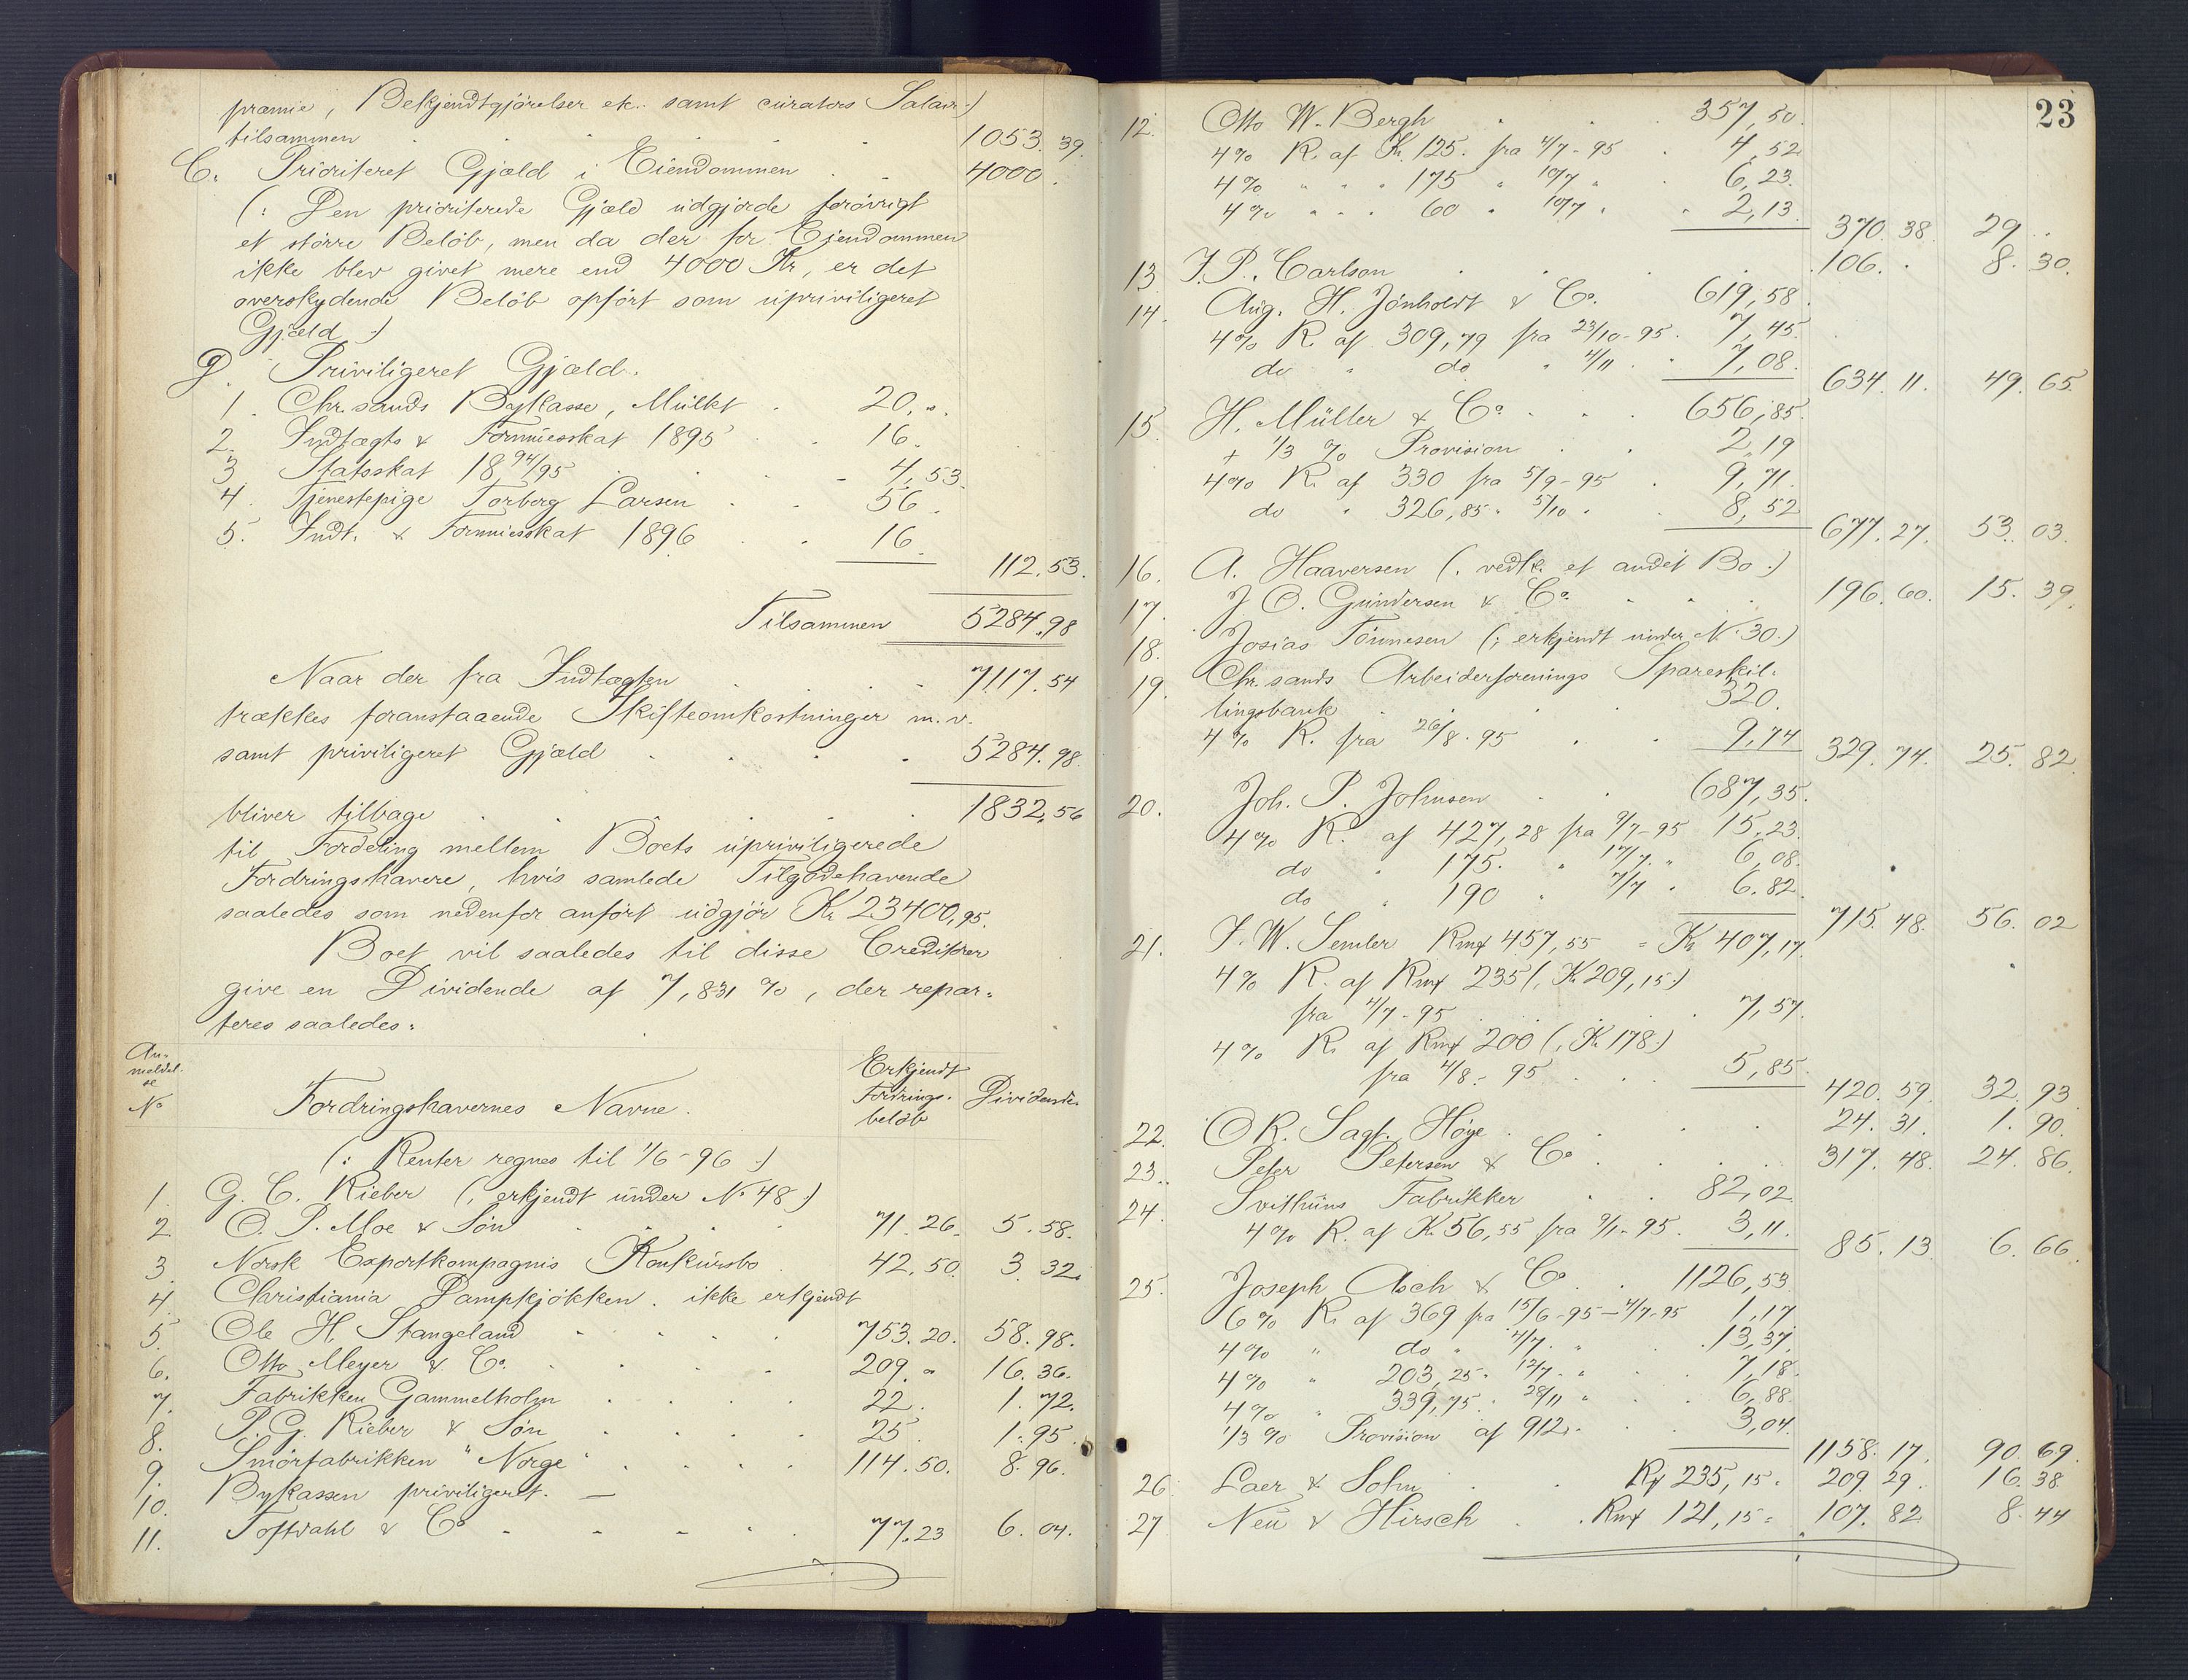 præmie, Bekjendtgjörelser etc. samt curators Salair :)
tilsammen . . . . 1053. 39.
C. Prioriteret Gjæld i Eiendommen . . 4000.
(: Den prioriterede Gjæld udgjorde forövrigt
et större Belöb, men da der for Ejendommen
ikke blev givet mere end 4000 Kr, er det
overskydende Belöb opfört som upriviligeret
Gjæld :)
D. Priviligeret Gjæld.
1. Chr.sands Bykasse, Mulkt . 20. "
2. Indtægts & Formuesskat 1895 . 16.
3. Statsskat 18 94/95 . . 4,53.
4. Tjenestepige Torborg Larsen . . 56.
5. Indt. & Formuesskat 1896 . . 16.
112.53.
Tilsammen 5284.98
Naar der fra Indtægten . . . 7117.54
trækkes foranstaaende Skifteomkostninger m.v.
samt priviligeret Gjæld . . . . 5284.98.
bliver tilbage . . . . . . 1832,56
til Fordeling mellem Boets upriviligerede
Fordringshavere, hvis samlede Tilgodehavende
saaledes som nedenfor anfört udgjör Kr 23400,95.
Boet vil saaledes til disse Creditorer
give en Dividende af 7,831 %, der repar-
teres saaledes:
An-
meldel-
se
No
Fordringshavernes Navne.
Erkjendt
Fordrings-
belöb
Dividende
(: Renter regnes til 1/6 - 96 :)
1. G. C. Rieber (: erkjendt under No 48 :)
2 O. P. Moe & Sön . . . . 71. 26. 5. 58.
3. Norsk Exportkompagnis Konkursbo . 42. 50. 3. 32.
4. Christiania Dampkjökken. ikke erkjendt
5. Ole H. Stangeland . . . . 753. 20. 58. 98.
6. Otto Meyer & Co. . . . . 209. " 16. 36.
7. Fabrikken Gammelholm . . . . 22. 1. 72.
8. P. G. Rieber & Sön . . . . 25. 1. 95.
9. Smörfabrikken "Norge" . . . . 114. 50. 8. 96.
10. Bykassen priviligeret. —
11. Toftdahl & Co . . . . 77. 23 6. 04.
23
12. Otto W. Bergh . . 357,50.
4% R. af Kr. 125. fra 4/7 - 95 . 4,52
4% " " " 175 " 10/7 " . 6,23.
4% " " " 60 " 10/7 " " 2,13.
370. 38. 29. .
13. J. P. Carlson . . . . 106. . 8. 30.
14. Aug. H. Jönholdt & Co. 619,58.
4% R. af 309,79 fra 23/10 - 95. 7,45.
do " do " 4/11 . . 7,08.
634. 11. 49. 65.
15. H. Müller & Co . . . 656,85.
+ 1/3 % Provision . . 2,19
4% R. af 330 fra 5/9 - 95 . 9,71.
do " 326,85 " 5/10 " . 8,52
677. 27. 53. 03.
16. A. Haaversen (: vedk. et andet Bo :)
17. J. O. Gundersen & Co. . . . 196. 60. 15. 39.
18. Josias Tönnesen (: erkjendt under No 30 :)
19. Chr.sands Arbeiderforenings Spareskil-
lingsbank . . . . 320.
4% R. fra 26/8 - 95 . . 9,74
329. 74. 25. 82.
20. Joh. P. Johnsen . . 687,35.
4% R. af 427,28 fra 9/7 - 95 15,23.
do " 175. " 17/7 " 6,08.
do " 190 " 7/7 " 6.82.
715. 48. 56. 02
21. J. W. Semler Rmk 457,55 = Kr 407,17.
4% R. af Rmk 235 (: Kr 209,15 :)
fra 4/7 - 95 . . . 7,57.
4% R. af Rmk 200 (: Kr 178 :)
fra 4/8 - 95 . . . 5,85.
420. 59. 32. 93
22. O. R. Sagf. Höye . . . . 24. 31. 1. 90.
23. Peter Petersen & Co . . . 317. 48. 24. 86.
24. Svithuns Fabrikker . . 82,02
4% R. af Kr 56,55 fra 9/1 - 95. 3,11.
85. 13. 6. 66.
25. Joseph Asch & Co . . 1126,53
6% R. af 369 fra 15/6 - 95 — 4/7 - 95 1,17
4% " do " 4/7. " . 13,37.
4% " 203,25. " 12/7 - " . 7,18.
4% " 339,75. " 28/11 " . 6,88
1/3 % Provision af 912. . . 3,04.
1158. 17. 90. 69.
26. Laer & Sohn . . Rk 235,15 = 209. 29. 16. 38
27 Neu & Hirsch . . Rmk 121,15 = 107. 82. 8. 44